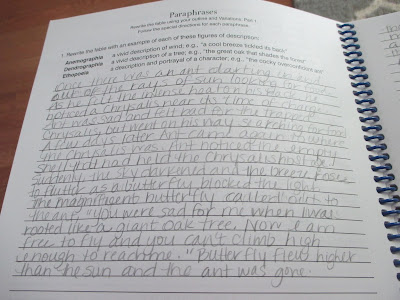 Paraphrases
Rewrite the fable using your outline and Variations, Part 1.
Follow the special directions for each paraphrase.
1. Rewrite the fable with an example of each of these figures of description:
Anemographia a vivid description of wind; e.g., "a cool breeze tickled its back"
Dendrographia a vivid description of a tree; e.g., "the great oak that shades the forest"
Ethopoeia a description and portrayal of a character; e.g., "the cocky, overconfident ant"
Once there was an ant darting
out of the rays of sun looking for food.
As he felt the intense heat on his back he
noticed a Chrysalis near its time of change.
Ant was sad and felt bad for the trapped
Chrysalis but went on his way searching for food.
A few days later Ant came again to where
the chrysalis was. Ant noticed the empty
shell that had held the Chrysalis hostage!
Suddenly the sky darkened and the breeze
to flutter as a butterfly blocked the light.
The magnificent butterfly called out to
the ant, "You were sad for me when I was
rooted like a giant oak tree. Now I am
free to fly and you can't climb high
enough to reach me." Butterfly flew higher
than the sun and the ant was gone.